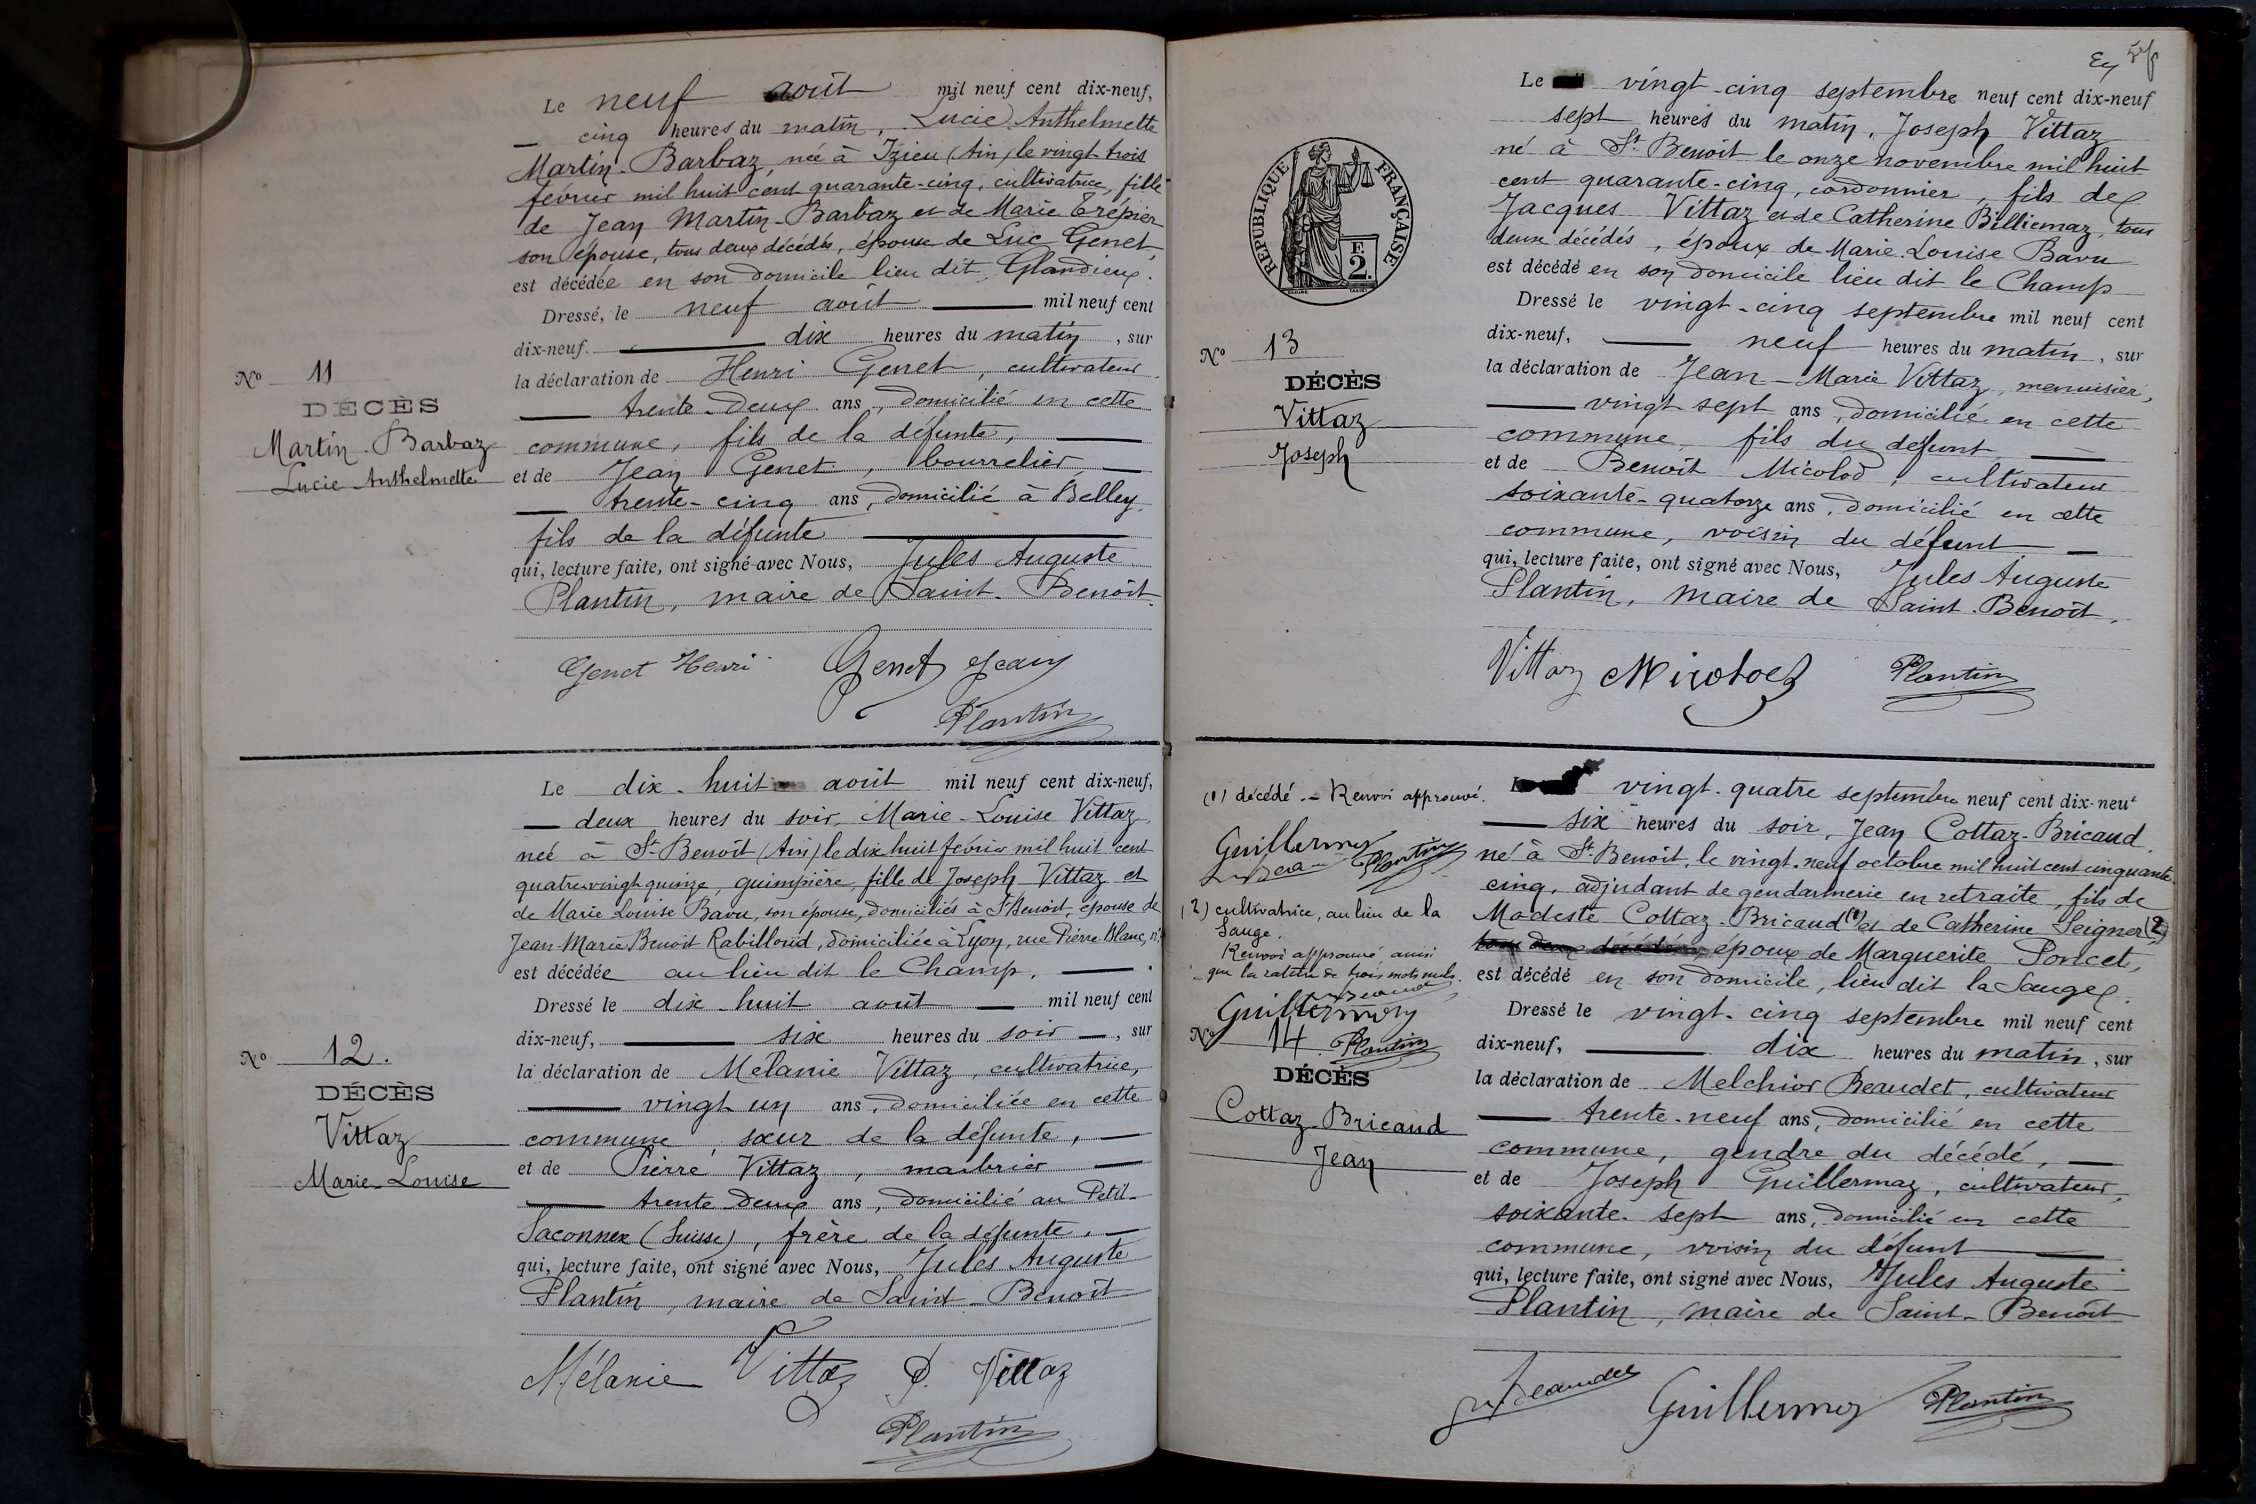 Le neuf août mil neuf cent dix-neuf,
cinq heures du matin, Lucie Anthelmette
Martin-Barbaz, née à Izieu (Ain) le vingt-trois
février mil huit cent quarante-cinq, cultivatrice, fille
de Jean Martin-Barbaz et de Marie Trépier
son épouse, tous deux décédés, épouse de Luc Genet,
est décédée en son domicile lieu dit, Glandieux.
Dressé, le neuf août mil neuf cent
dix-neuf. dix heures du matin, sur
la déclaration de Henri Genet, cultivateur
trente-deux ans, domicilié en cette
commune, fils de la défunte,
et de Jean Genet, bourrelier,
trente-cinq ans, domicilié à Belley,
fils de la défunte
qui, lecture faite, ont signé avec Nous, Jules Auguste
Plantin, maire de Saint-Benoît.
Genet Henri Genet Jean
Plantin
No 11
DÉCÈS
Martin-Barbaz
Lucie Anthelmette
Le dix-huit août mil neuf cent dix-neuf,
deux heures du soir, Marie-Louise Vittaz,
née à St Benoît (Ain) le dix huit février mil huit cent
quatre vingt quinze, guimpière, fille de Joseph Vittaz et
de Marie Louise Bavu, son épouse, domiciliés à St Benoît, épouse de
Jean-Marie Benoît Rabilloud, domiciliée à Lyon, rue Pierre Blanc,
est décédée au lieu dit le Champ.
Dressé le dix-huit août mil neuf cent
dix-neuf, six heures du soir, sur
la déclaration de Mélanie Vittaz, cultivatrice,
vingt un ans, domiciliée en cette
commune, sœur de la défunte,
et de Pierre Vittaz, marbrier
trente-deux ans, domicilié au Petit-
Saconnex (Suisse), frère de la défunte.
qui, lecture faite, ont signé avec Nous, Jules Auguste
Plantin, maire de Saint-Benoît
Mélanie Vittaz P. Vittaz
Plantin
No 12.
DÉCÈS
Vittaz
Marie-Louise
RÉPUBLIQUE FRANÇAISE
F
2.
Le vingt-cinq septembre neuf cent dix-neuf
sept heures du matin, Joseph Vittaz
né à St Benoît le onze novembre mil huit
cent quarante-cinq, cordonnier, fils de
Jacques Vittaz et de Catherine Billiemaz, tous
deux décédés, époux de Marie-Louise Bavu
est décédé en son domicile lieu dit le Champ
Dressé le vingt-cinq septembre mil neuf cent
dix-neuf, neuf heures du matin, sur
la déclaration de Jean-Marie Vittaz, menuisier,
vingt sept ans, domicilié en cette
commune, fils du défunt
et de Benoît Micolod, cultivateur
soixante-quatorze ans, domicilié en cette
commune, voisin du défunt
qui, lecture faite, ont signé avec Nous, Jules Auguste
Plantin, maire de Saint-Benoît.
Vittaz Micolod Plantin
No 13
DÉCÈS
Vittaz
Joseph
vingt-quatre septembre neuf cent dix-neuf
six heures du soir, Jean Cottaz-Bricaud,
né à St Benoît, le vingt-neuf octobre mil huit cent cinquante-
cinq, adjudant de gendarmerie en retraite, fils de
Modeste Cottaz-Bricaud (1) et de Catherine Seigner (2)
tous deux décédés, époux de Marguerite Poncet,
est décédé en son domicile, lieu dit la Sauge.
Dressé le vingt-cinq septembre mil neuf cent
dix-neuf, dix heures du matin, sur
la déclaration de Melchior Beaudet, cultivateur
trente-neuf ans, domicilié en cette
commune, gendre du décédé,
et de Joseph Guillermaz, cultivateur,
soixante-sept ans, domicilié en cette
commune, voisin du défunt
qui, lecture faite, ont signé avec Nous, Jules Auguste
Plantin, maire de Saint-Benoît
Beaudet Guillermoz Plantin
(1) décédé.- Renvoi approuvé.
Guillermoz
Plantin
(2) cultivatrice, au lieu de la
Sauge.
Renvoi approuvé, ainsi
que la rature de trois mots nuls.
Guillermoz
No 14 Plantin
DÉCÈS
Cottaz-Bricaud
Jean